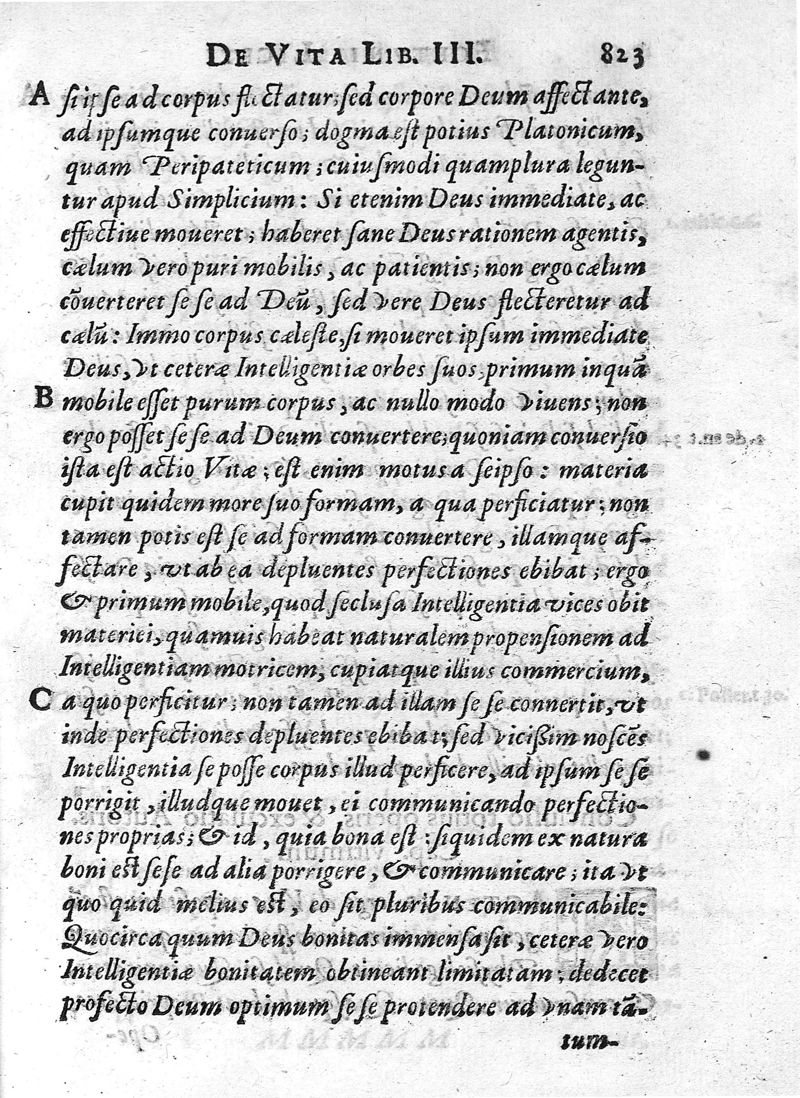 DE VITA LIB. III. 823
A ſi ipſe ad corpus flectatur; ſed corpore Deum affectante,
ad ipſumque conuerſo; dogma eſt potius Platonicum,
quam Peripateticum; cuiuſmodi quamplura legun-
tur apud Simplicium: Si etenim Deus immediate, ac
effectiue moueret; haberet ſane Deus rationem agentis,
cælum vero puri mobilis, ac patientis; non ergo cælum
cōuerteret ſe ſe ad Deū, ſed vere Deus flecteretur ad
cælū: Immo corpus cæleſte, ſi moueret ipſum immediate
Deus, vt ceteræ Intelligentiæ orbes ſuos, primum inquā
B mobile eſſet purum corpus, ac nullo modo viuens; non
ergo poſſet ſe ſe ad Deum conuertere; quoniam conuerſio
iſta eſt actio Vitæ; eſt enim motus a ſeipſo: materia
cupit quidem more ſuo formam, a qua perficiatur; non
tamen potis eſt ſe ad formam conuertere, illamque af-
fectare, vt ab ea depluentes perfectiones ebibat; ergo
& primum mobile, quod ſecluſa Intelligentia vices obit
materiei, quamuis habeat naturalem propenſionem ad
Intelligentiam motricem, cupiatque illius commercium,
C a quo perficitur; non tamen ad illam ſe ſe connertit, vt
inde perfectiones depluentes ebibat; ſed viciſſim noſcēs
Intelligentia ſe poſſe corpus illud perficere, ad ipſum ſe ſe
porrigit, illudque mouet, ei communicando perfectio-
nes proprias; & id, quia bona eſt: ſiquidem ex natura
boni eſt ſeſe ad alia porrigere, & communicare; ita vt
quo quid melius eſt, eo ſit pluribus communicabile:
Quocirca quum Deus bonitas immenſa ſit, ceteræ vero
Intelligentiæ bonitatem obtineant limitatam; dedecet
profecto Deum optimum ſe ſe protendere ad vnam tā-
tum-